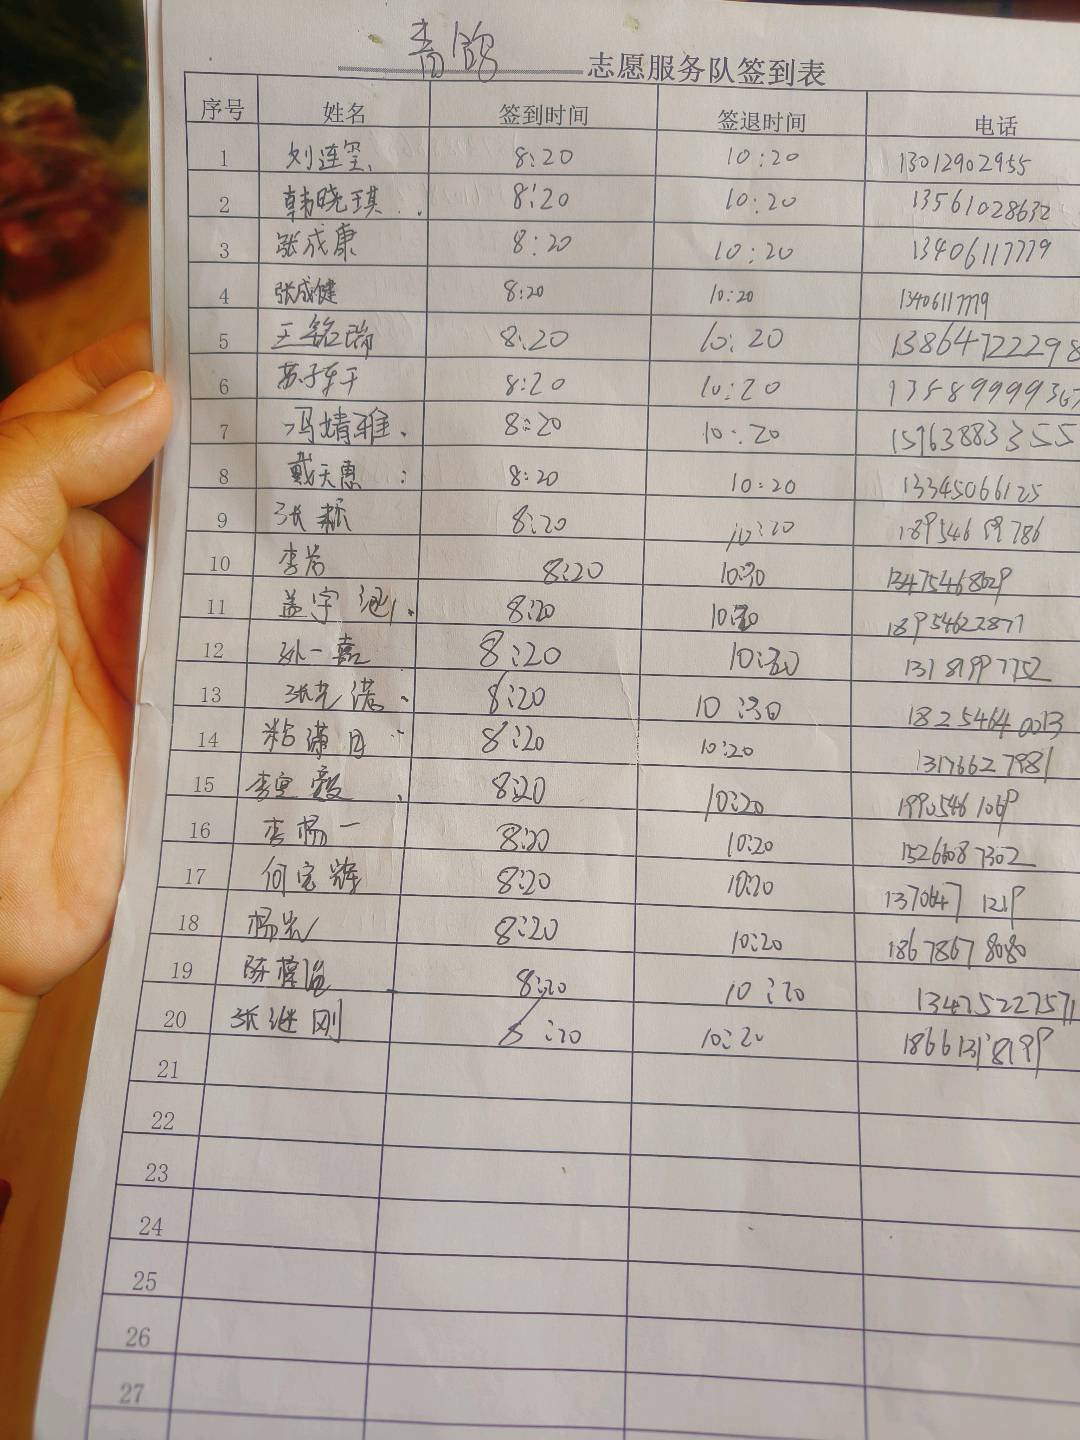 青鸽 志愿服务队签到表
序号 姓名 签到时间 签退时间 电话
1 刘连玺 8:20 10:20 13012902955
2 韩晓琪 8:20 10:20 13561028632
3 张成康 8:20 10:20 13406117779
4 张成健 8:20 10:20 13406117779
5 王铭瑞 8:20 10:20 13864722298
6 8:20 10:20
7 冯婧雅 8:20 10:20 15963883355
8 戴天惠 8:20 10:20 13345066125
9 8:20 10:20 18954689786
10 8:20 10:30 13475468629
11 8:20 18954622871
12 孙一嘉 8:20 13181997752
13 8:20 10:30 18254640013
14 8:20 10:20 13176627981
15 8:20 10:20 19905461069
16 李杨一 8:20 10:20 15266087302
17 何宝辉 8:20 10:20 13706471219
18 8:20 10:20 18678678080
19 8:20 10:20 13475227571
20 张继刚 8:20 10:20 18661318199
21
22
23
24
25
26
27